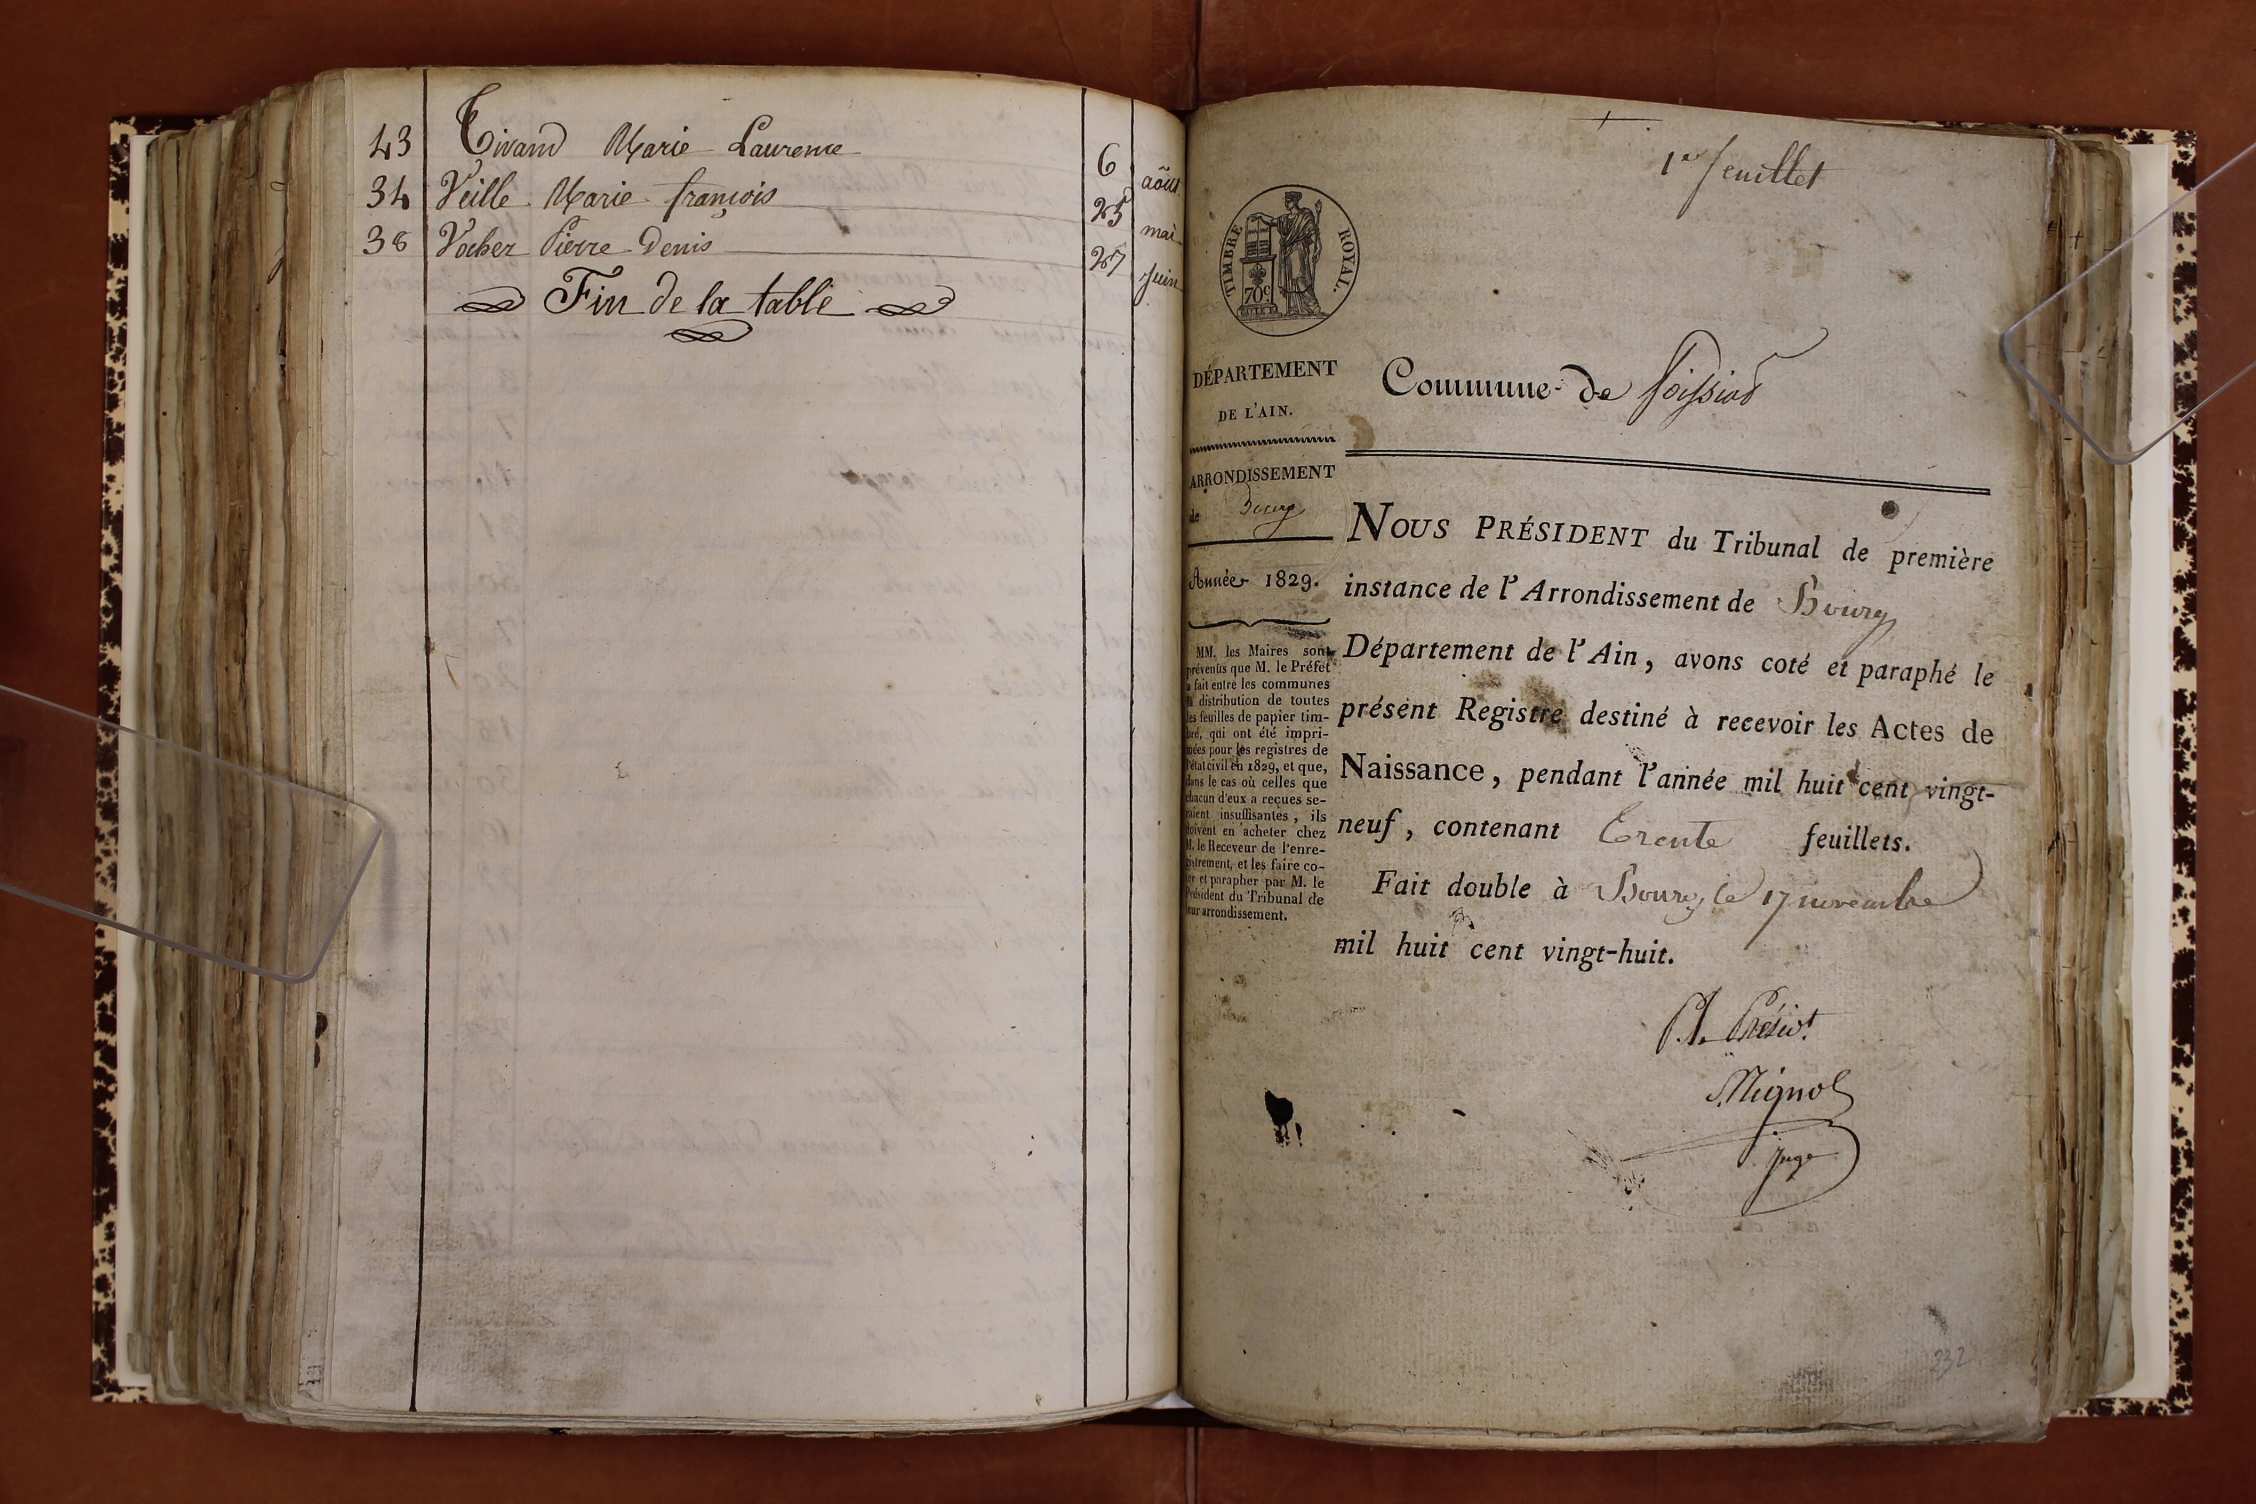 43 Tivand Marie Laurence 6 août
34 Veille Marie françois 25 mai
38 Vocher Pierre Denis 27 Juin
Fin de la table
1er feuillet
TIMBRE ROYAL.
70c
DÉPARTEMENT
DE L'AIN.
ARRONDISSEMENT
de Bourg
Année 1829.
MM. les Maires sont
prévenus que M. le Préfet
a fait entre les communes
la distribution de toutes
les feuilles de papier tim-
bré, qui ont été impri-
mées pour les registres de
l'état civil en 1829, et que,
dans le cas où celles que
chacun d'eux a reçues se-
raient insuffisantes, ils
doivent en acheter chez
M. le Receveur de l'enre-
gistrement, et les faire co-
ter et parapher par M. le
Président du Tribunal de
leur arrondissement.
Commune de
NOUS PRÉSIDENT du Tribunal de première
instance de l'Arrondissement de Bourg
Département de l'Ain, avons coté et paraphé le
présent Registre destiné à recevoir les Actes de
Naissance, pendant l'année mil huit cent vingt-
neuf, contenant Trente feuillets.
Fait double à Bourg, le 17 novembre
mil huit cent vingt-huit.
P. le Présidt.
Mignot
Juge
232